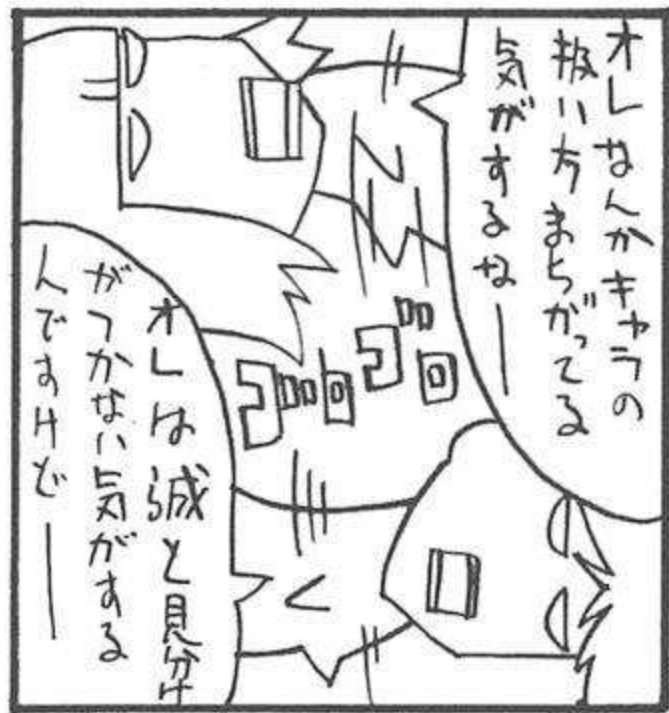 オレなんかキャラの
扱い方まちがってる
気がするなー
ゴロ
ゴロ
オレは誠と見分け
がつかない気がする
んですけどー